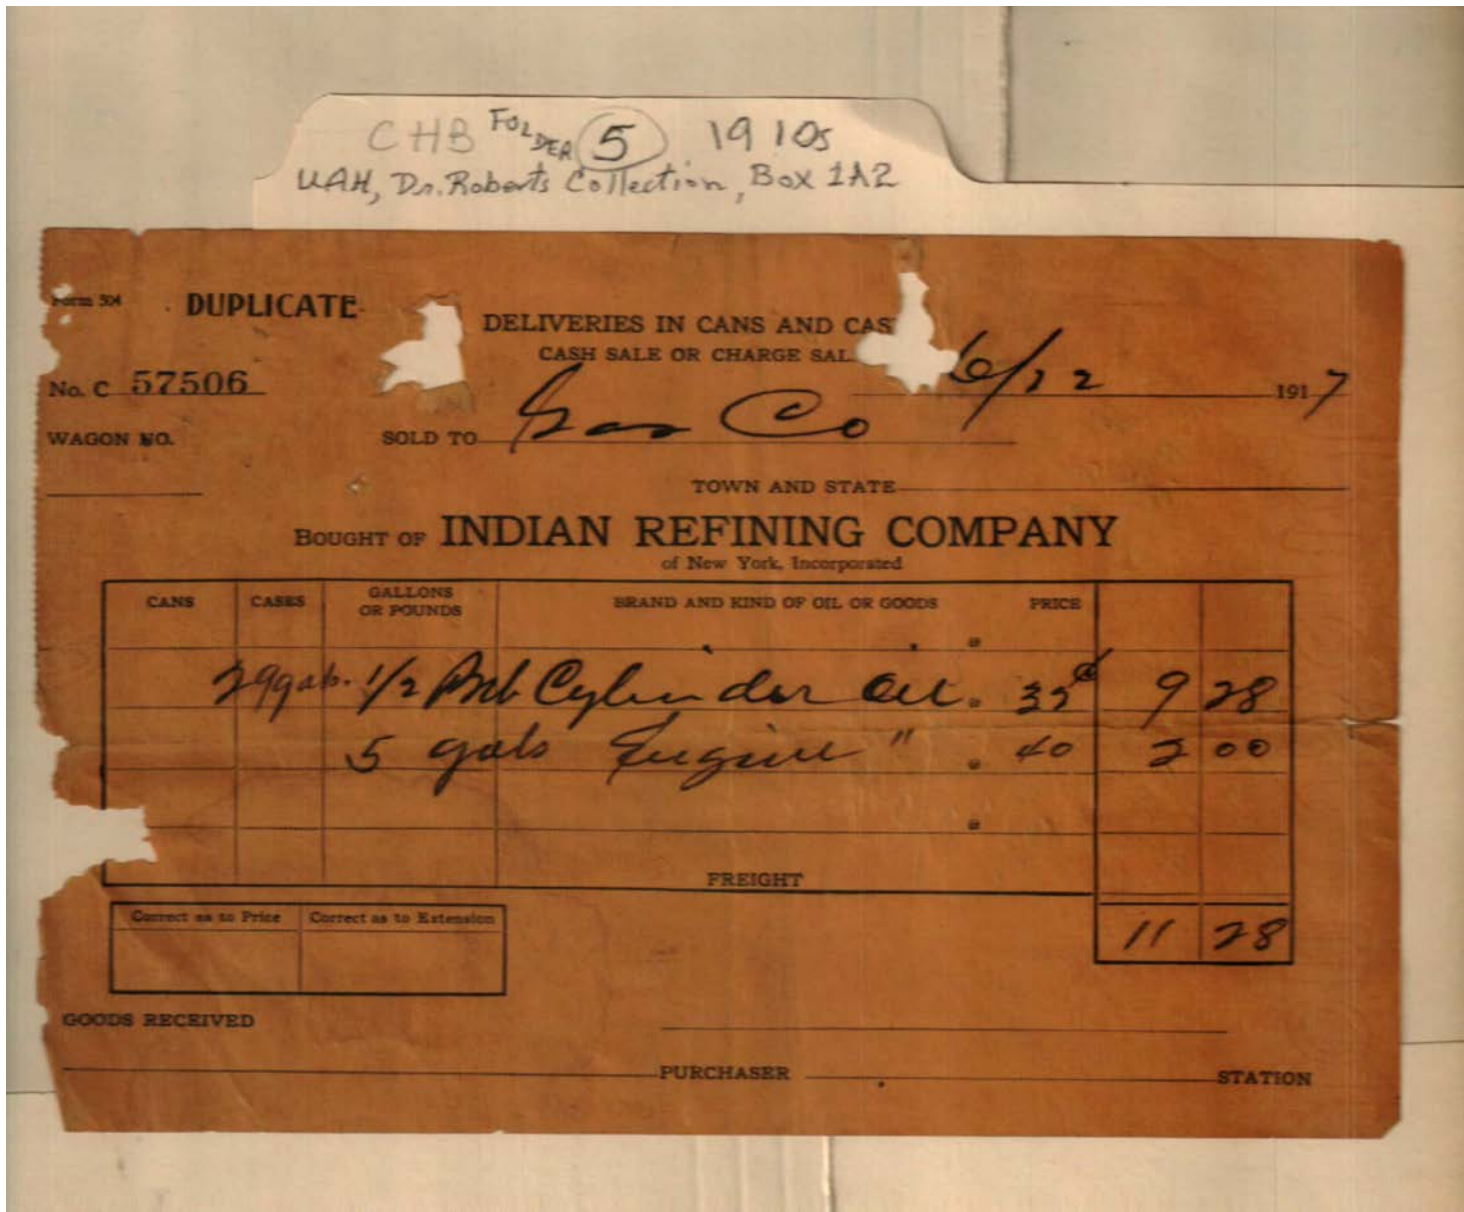 CHB FOLDER 5 1910s
UAH, Dr. Roberts Collection, Box 1A2
Form 504 DUPLICATE
DELIVERIES IN CANS AND CAS
CASH SALE OR CHARGE SAL
No. C 57506 6/22 1917
WAGON NO. SOLD TO Gas Co
TOWN AND STATE
BOUGHT OF INDIAN REFINING COMPANY
of New York, Incorporated
CANS CASES GALLONS OR POUNDS BRAND AND KIND OF OIL OR GOODS PRICE
@
29 gals. 1/2 Bbl Cylinder Oil @ 32¢ 9 28
5 gals Engine " @ 40 2 00
@
FREIGHT
Correct as to Price Correct as to Extension
11 28
GOODS RECEIVED
PURCHASER STATION